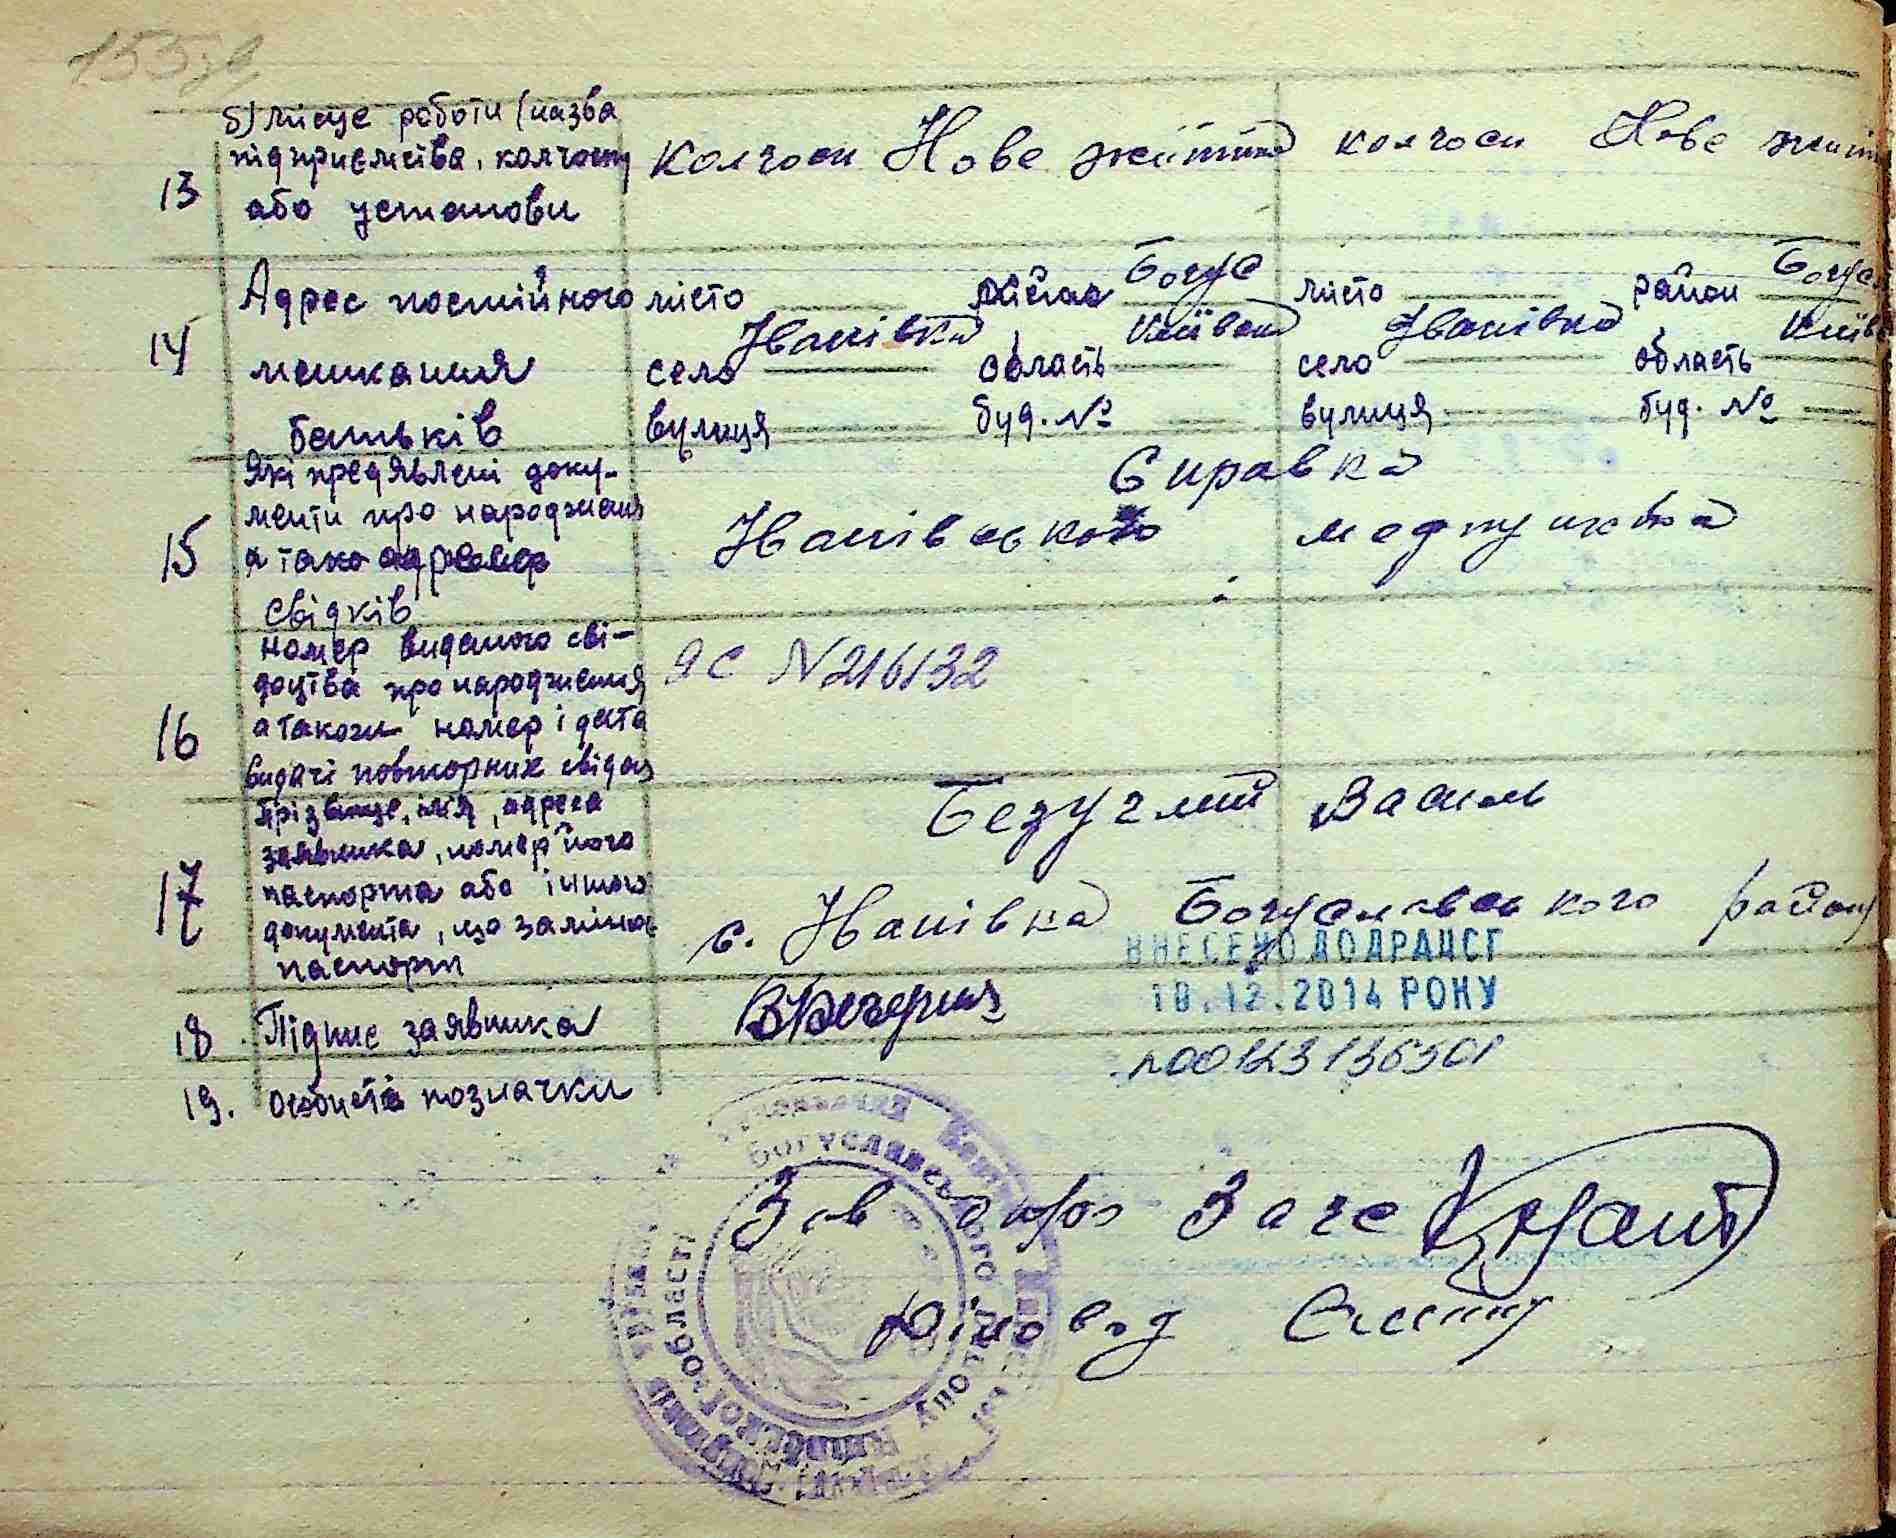 155зв
б) місце роботи (назва
підприємства, колгоспу
або установи
13
колгосп Нове життя колгосп Нове житт
Адрес постійного
мешкання
батьків
14
місто район Богус місто район Богус
село Іванівка, область Київськ село Іванівка, область Київ
вулиця буд. № вулиця буд. №
Які предявлені доку-
менти про народження
а також
свідків
15
Справка
Іванівського медпункта
номер виданого сві-
доцтва про народження
а також номер і дата
видачі повторних свідоц
16
ЯС N216132
Прізвище, імя, адреса
заявника, номер його
паспорта або іншого
документа, що заміняє
паспорт
17
Безуглий Василь
с. Іванівка Богуславського району
ВНЕСЕНО ДО ДРАЦСГ
10.12.2014 РОКУ
18 Підпис заявника
19. Особисті позначки
00123136501
Зав бюро Загс
Діловод
БОГУСЛАВСЬКОГО
КИЇВСЬКОЇ ОБЛАСТІ